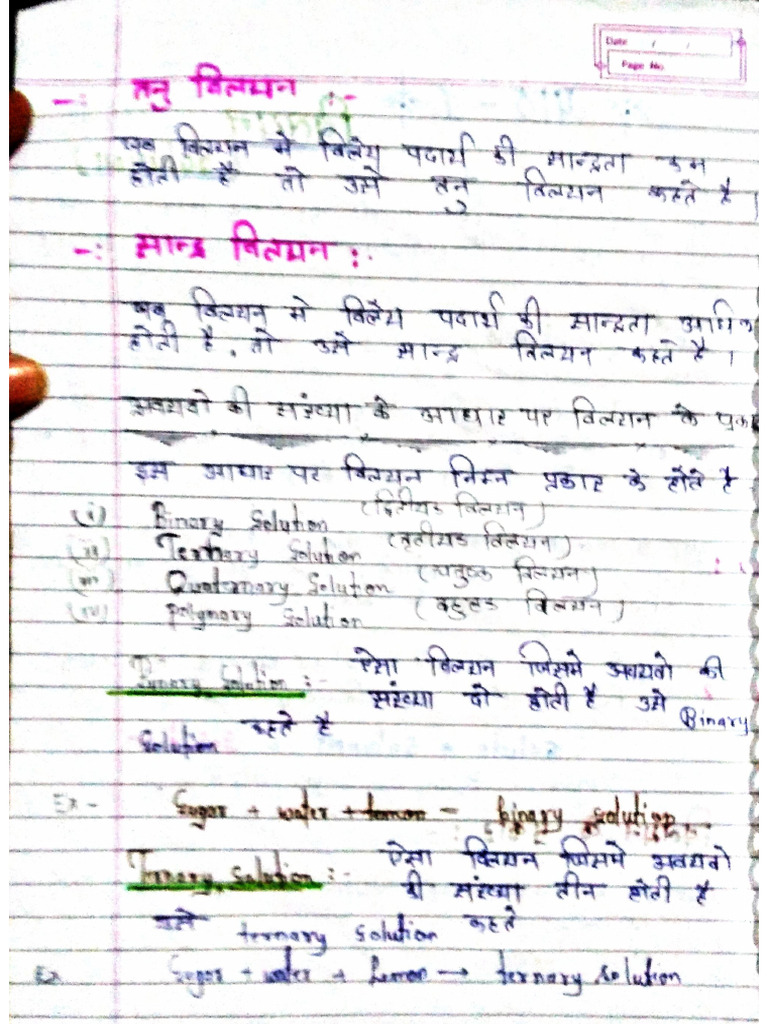 Date / /
Page No.
-: तनु विलयन :-
जब विलयन मे विलेय पदार्थ की सान्द्रता कम
होती है तो उसे तनु विलयन कहते है।
-: सान्द्र विलयन :-
जब विलयन मे विलेय पदार्थ की सान्द्रता अधिक
होती है, तो उसे सान्द्र विलयन कहते है।
अवयवो की संख्या के आधार पर विलयन के प्रका
इस आधार पर विलयन निम्न प्रकार के होते है
(i) Binary Solution (द्वितीयक विलयन)
(ii) Ternary Solution (तृतीयक विलयन)
(iii) Quaternary Solution (चतुष्क विलयन)
(iv) polynary Solution (बहुलक विलयन)
Binary Solution :- ऐसा विलयन जिसमे अवयवो की
संख्या दो होती है उसे Binary
Solution कहते है
Ex - Sugar + water + lemon - binary solution
Ternary Solution :- ऐसा विलयन जिसमे अवयवो
की संख्या तीन होती है
उसे ternary solution कहते
Ex Sugar + water + lemon → ternary solution